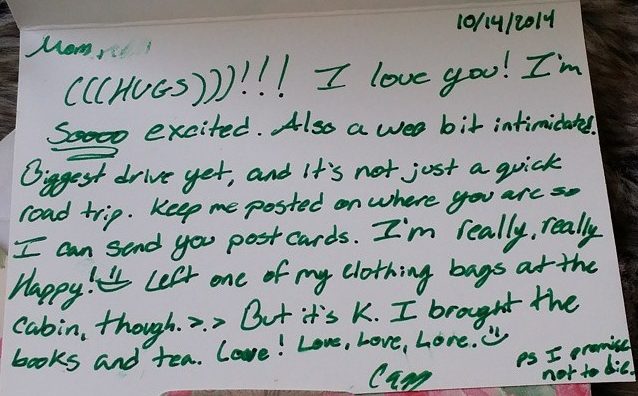 10/14/2014
Mom,
(((HUGS)))!!! I love you! I'm
Soooo excited. Also a wee bit intimidated.
Biggest drive yet, and it's not just a quick
road trip. Keep me posted on where you are so
I can send you post cards. I'm really, really
Happy! Left one of my clothing bags at the
cabin, though. >.> But it's K. I brought the
books and tea. Love! Love, Love, Love.
ps I promise
not to die.